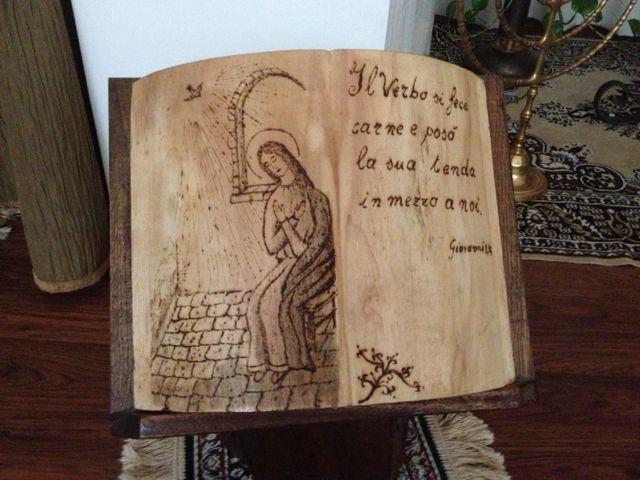 Il Verbo si fece
carne e posó
la sua tenda
in mezzo a noi.
Giovanni